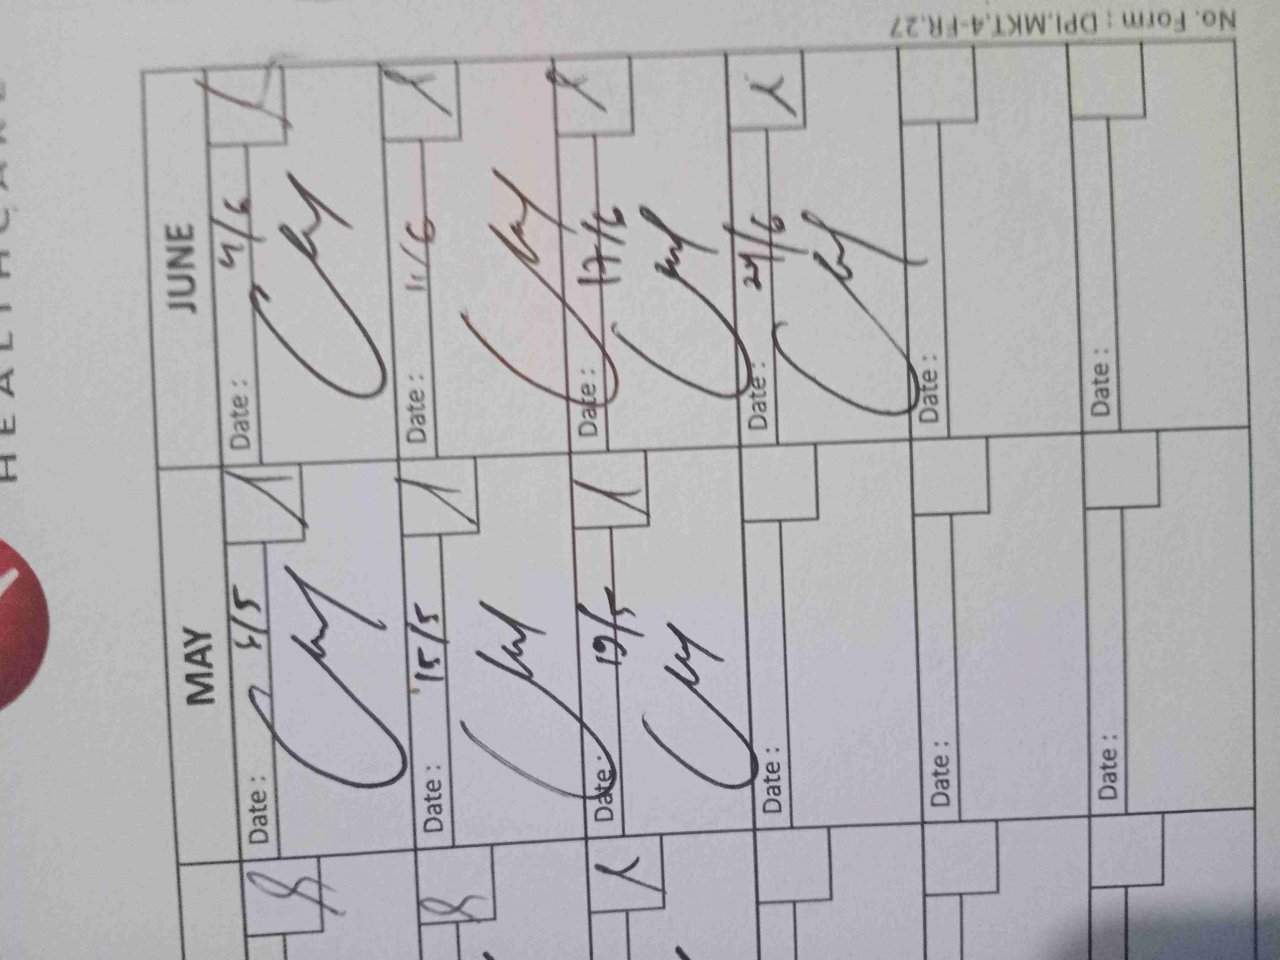 HEALTHCARE
No. Form : DPI.MKT.4-FR.27
MAY
JUNE
Date : 5/5
Date : 4/6
Date : 15/5
Date : 11/6
Date : 19/5
Date : 17/6
Date :
Date : 24/6
Date :
Date :
Date :
Date :